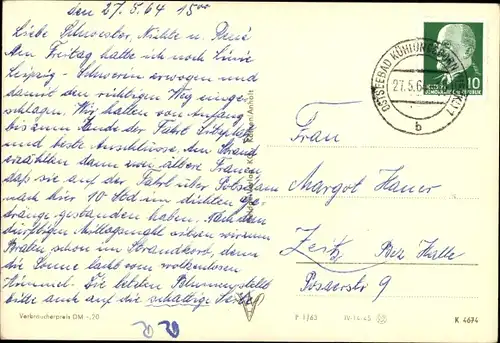 den 27.5.64 15⁰⁰
Liebe Schwester, Nichte u. René
Am Freitag hatte ich noch Linie
Leipzig - Schwerin erwogen und
damit den richtigen Weg einge-
schlagen. Wir hatten von Anfang
bis zum Ende der Fahrt Sitzplatz
und beste Anschlüsse. Am Strand
erzählten dann zwei ältere Frauen
daß sie auf der Fahrt über Potsdam
nach hier 10 Std im dichten Ge-
dränge gestanden haben. Nach dem
dürftigen Mittagsmahl sitzen wir zum
Braten schon im Strandkorb, denn
die Sonne lacht vom wolkenlosen
Himmel. Die letzten Blumen stellt
bitte auch auf die schattige Seite
Verbraucherpreis DM -,20
20 20
OSTSEEBAD KÜHLUNGSBORN
27.5.64
b
10
Frau
Margot Hauer
Zeitz Bez Halle
Posaerstr 9
P 1/63 IV-14-45 K 4674